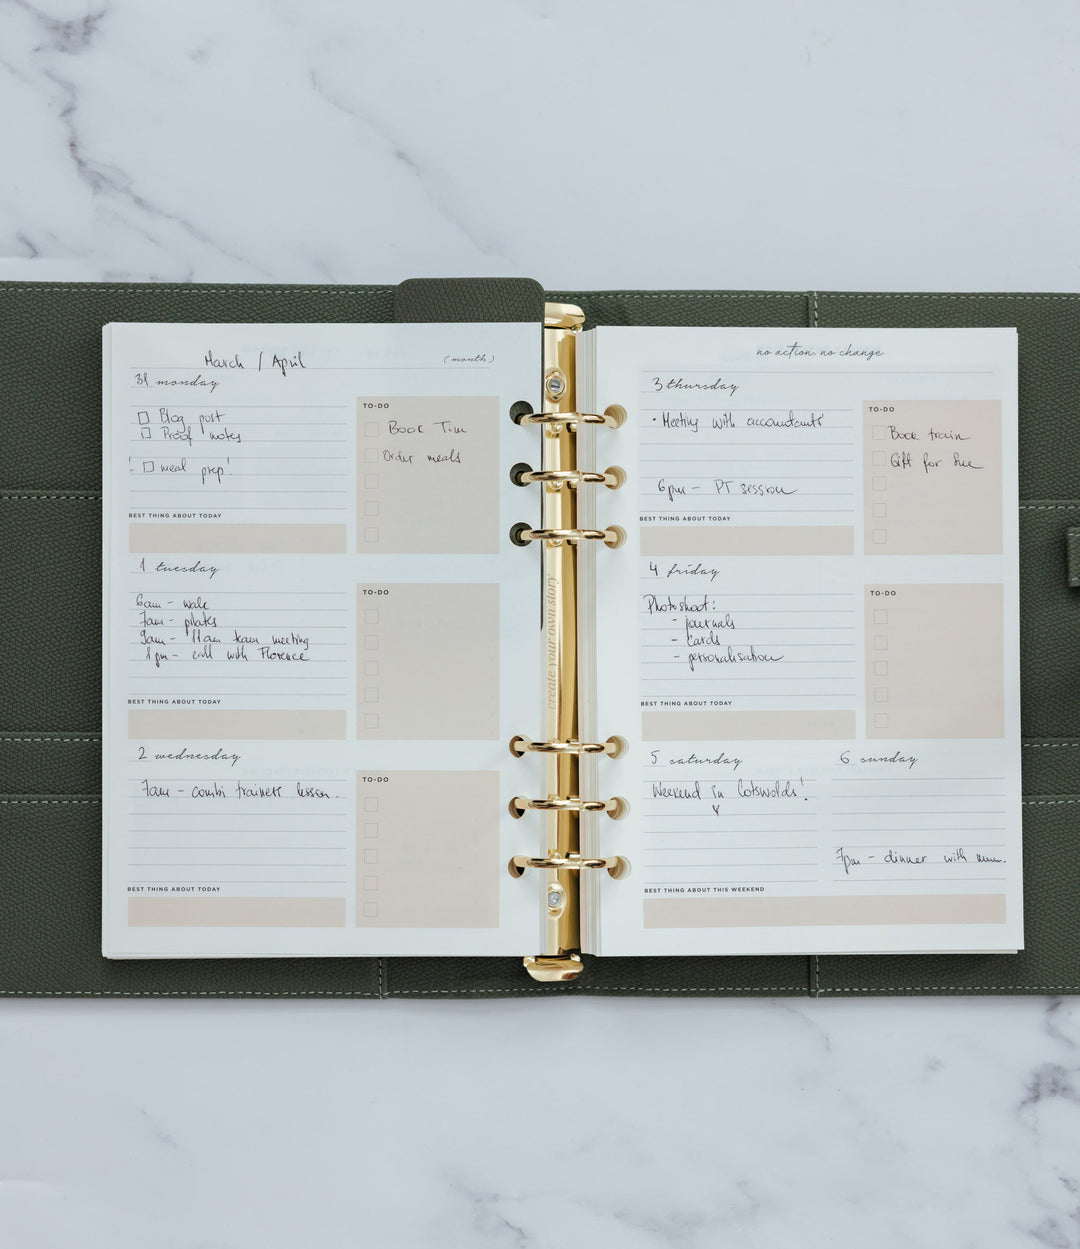 March / April
(month)
31 monday
Blog post
Proof notes
! meal prep!
TO-DO
Book Tim
Order meals
BEST THING ABOUT TODAY
1 tuesday
6am - walk
7am - pilates
9am - 11am team meeting
8pm - call with Florence
TO-DO
BEST THING ABOUT TODAY
2 wednesday
7am - combi trainers lesson.
TO-DO
BEST THING ABOUT TODAY
create your own story
no action. no change
3 thursday
• Meeting with accountants'
6pm - PT session
TO-DO
Book train
Gift for Sue
BEST THING ABOUT TODAY
4 friday
Photoshoot:
- journals
- cards
- personalisation
TO-DO
BEST THING ABOUT TODAY
5 saturday
Weekend in Cotswolds!
6 sunday
7pm - dinner with mum.
BEST THING ABOUT THIS WEEKEND